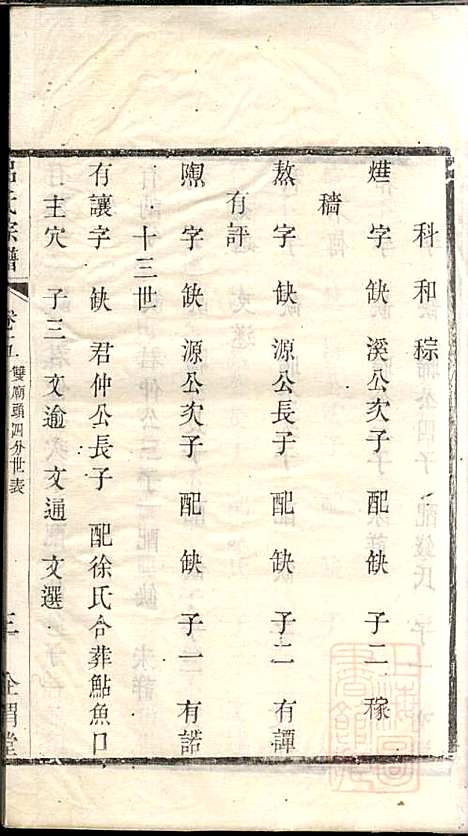 科 和 稌
燁 字缺 溪公次子 配缺 子二 稼
穡
熬 字缺 源公長子 配缺 子二 有譚
有評
字缺 源公次子 配缺 子一 有諾
十三世
有讓字缺 君仲公長子 配徐氏合葬鮎魚口
主穴 子三 文逾 文通 文選
呂氏宗譜 卷十五 雙廟頭四分世表 三 渭堂
上海圖書館藏